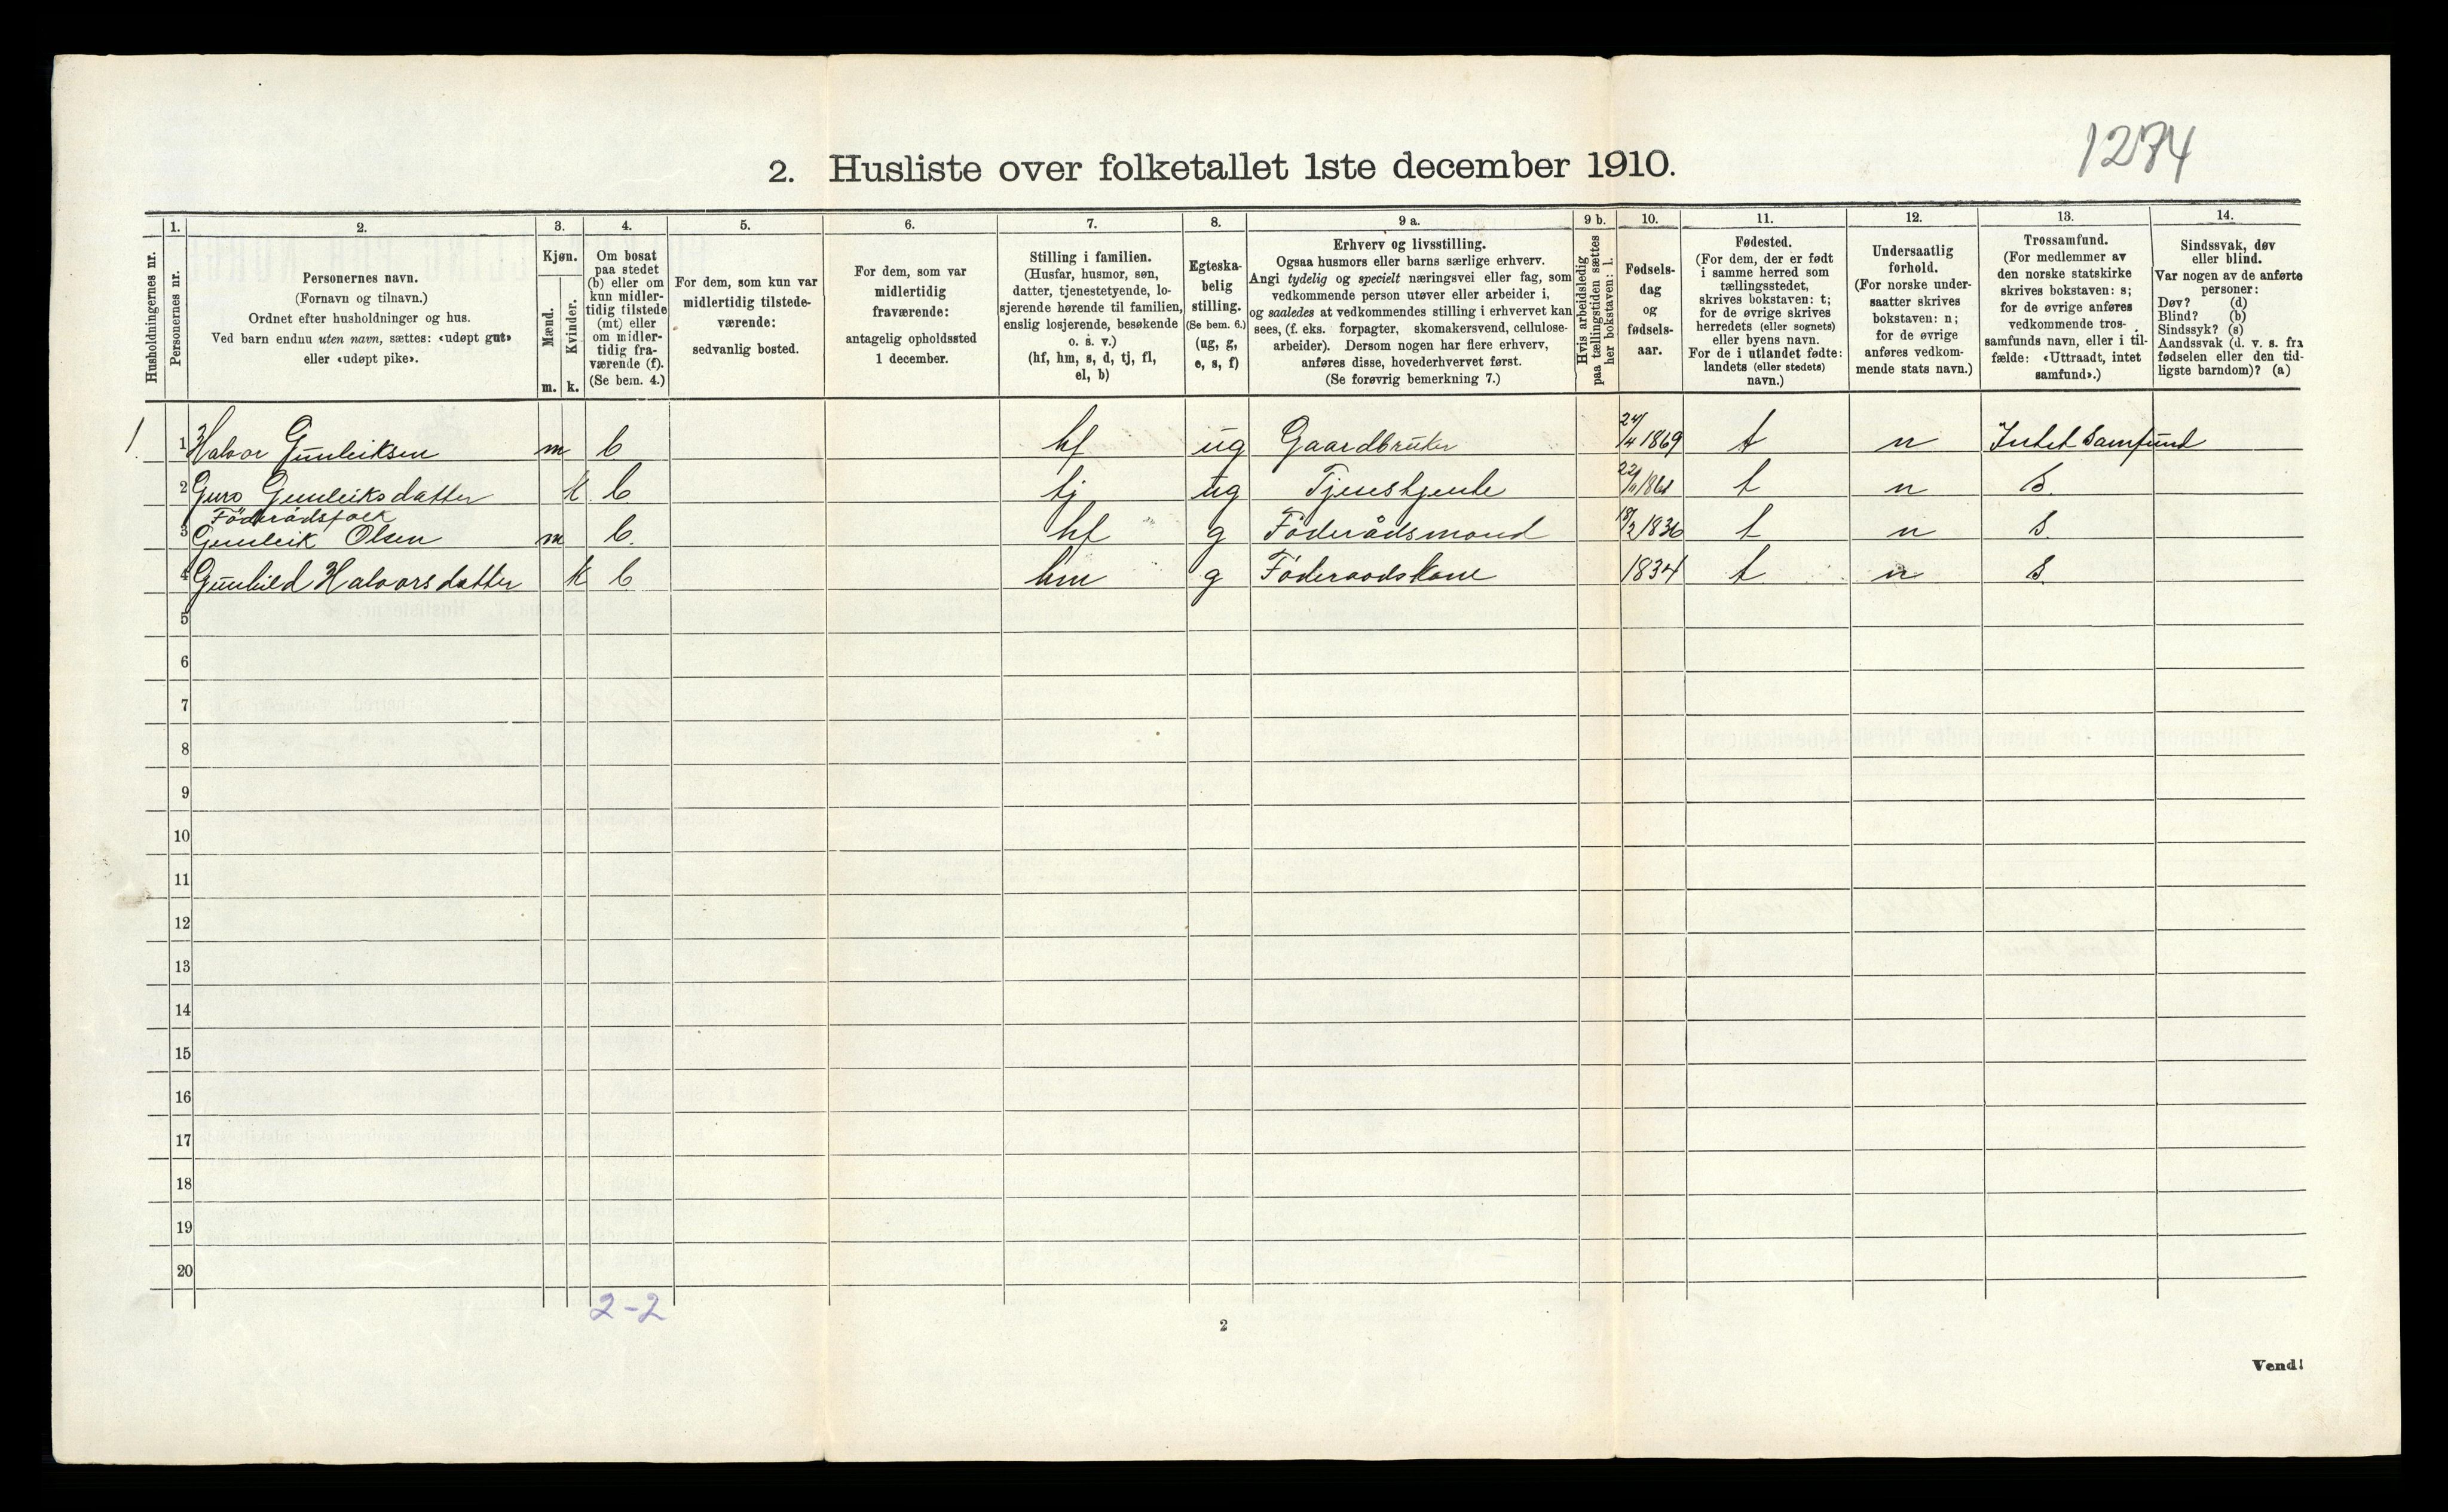 1274
2. Husliste over folketallet 1ste december 1910.
Husholdningernes nr.
1. Personernes nr.
2. Personernes navn.
(Fornavn og tilnavn.)
Ordnet efter husholdninger og hus.
Ved barn endnu uten navn, sættes: «udøpt gut»
eller «udøpt pike».
3. Kjøn.
Mænd. m.
Kvinder. k.
4. Om bosat
paa stedet
(b) eller om
kun midler-
tidig tilstede
(mt) eller
om midler-
tidig fra-
værende (f).
(Se bem. 4.)
5. For dem, som kun var
midlertidig tilstede-
værende:
sedvanlig bosted.
6. For dem, som var
midlertidig
fraværende:
antagelig opholdssted
1 december.
7. Stilling i familien.
(Husfar, husmor, søn,
datter, tjenestetyende, lo-
sjerende hørende til familien,
enslig losjerende, besøkende
o. s. v.)
(hf, hm, s, d, tj, fl,
el, b)
8. Egteska-
belig
stilling.
(Se bem. 6.)
(ug, g,
e, s, f)
9 a. Erhverv og livsstilling.
Ogsaa husmors eller barns særlige erhverv.
Angi tydelig og specielt næringsvei eller fag, som
vedkommende person utøver eller arbeider i,
og saaledes at vedkommendes stilling i erhvervet kan
sees, (f. eks. forpagter, skomakersvend, cellulose-
arbeider). Dersom nogen har flere erhverv,
anføres disse, hovederhvervet først.
(Se forøvrig bemerkning 7.)
9 b. Hvis arbeidsledig
paa tællingstiden sættes
her bokstaven: l.
10. Fødsels-
dag
og
fødsels-
aar.
11. Fødested.
(For dem, der er født
i samme herred som
tællingsstedet,
skrives bokstaven: t;
for de øvrige skrives
herredets (eller sognets)
eller byens navn.
For de i utlandet fødte:
landets (eller stedets)
navn.)
12. Undersaatlig
forhold.
(For norske under-
saatter skrives
bokstaven: n;
for de øvrige
anføres vedkom-
mende stats navn.)
13. Trossamfund.
(For medlemmer av
den norske statskirke
skrives bokstaven: s;
for de øvrige anføres
vedkommende tros-
samfunds navn, eller i til-
fælde: «Uttraadt, intet
samfund».)
14. Sindssvak, døv
eller blind.
Var nogen av de anførte
personer:
Døv? (d)
Blind? (b)
Sindssyk? (s)
Aandssvak (d. v. s. fra
fødselen eller den tid-
ligste barndom)? (a)
1. 1 Halvor Gunleiksen m b hf ug Gaardbruker 24/4 1869 t n Intet Samfund
2 Guro Gunleiksdatter k b tj ug Tjenestjente t n S.
Föderådsfolk
3 Gunleik Olsen m b. hf g Föderådsmand 18/2 1836 t n S.
4 Gunhild Halvorsdatter k b hm g Föderaadskone 1834 t n S.
5
6
7
8
9
10
11
12
13
14
15
16
17
18
19
20
2-2
2
Vend!